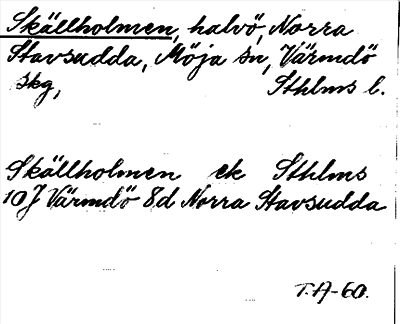 Skällholmen, halvö, Norra
Stavsudda, Möja sn, Värmdö
skg, Sthlms l.
Skällholmen ek Sthlms
10J Värmdö 8d Norra Stavsudda
T.A-60.